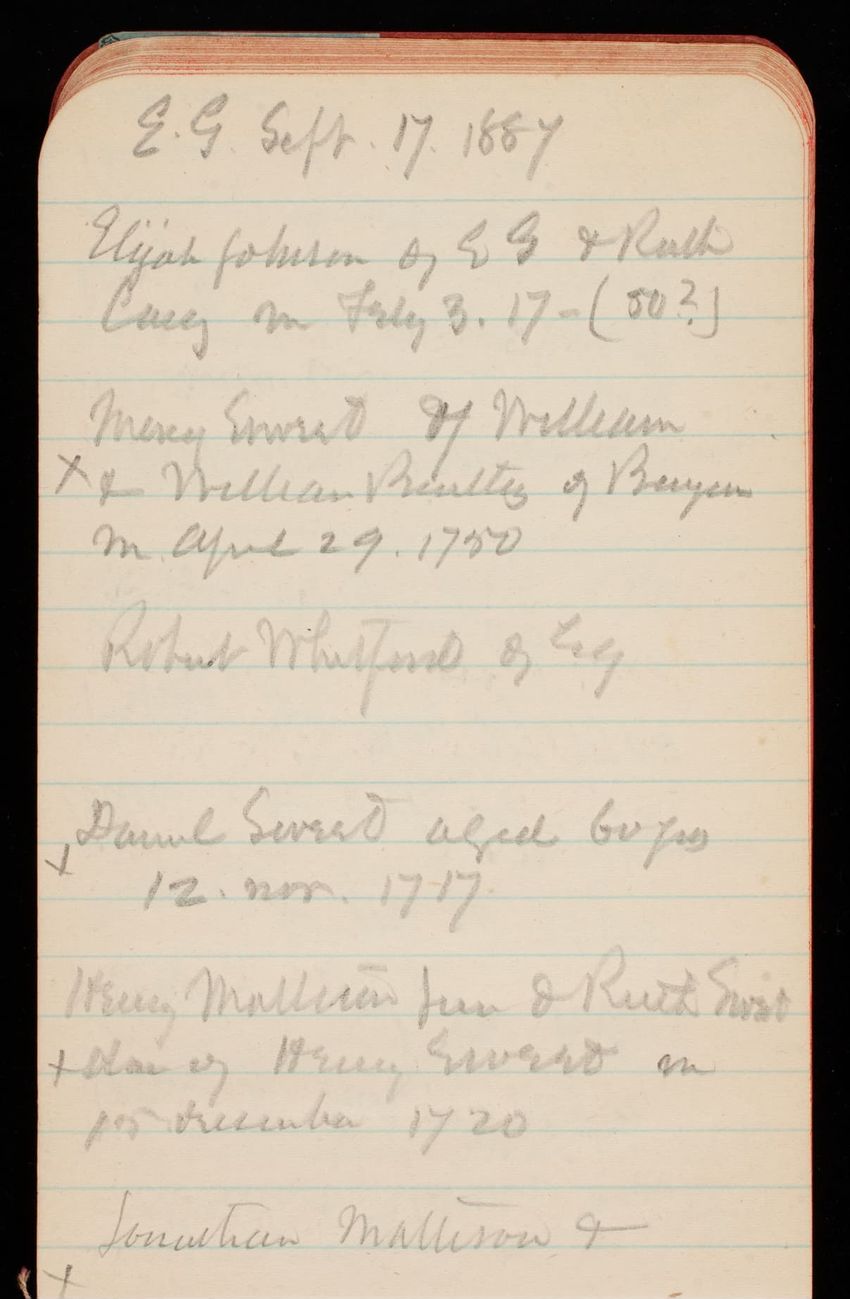 E.G. Sept. 17. 1887
Elijah Johnson of E G & Ruth
m July 3. 17-(50?)
Mercy Sweet of William
x & William Bentley of
m April 29. 1750
Robert Whitford of
Daniel Sweet aged 60 yrs
x 12. nov. 1717
Henry Matteson Jun & Ruth Sweet
x dau of Henry Sweet m
15 december 1720
Jonathan Matteson &
x